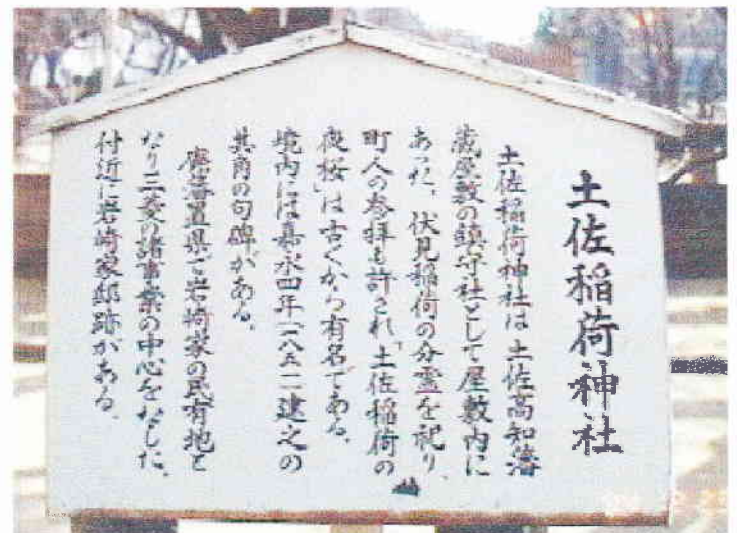 土佐稲荷神社
土佐稲荷神社は土佐高知藩
蔵屋敷の鎮守社として屋敷内に
あった。伏見稲荷の分霊を祀り、
町人の参拝も許され、「土佐稲荷の
夜桜」は古くから有名である。
境内には嘉永四年(一八五一)建之の
其角の句碑がある。
廃藩置県で岩崎家の民有地と
なり三菱の諸事業の中心をなした。
付近に岩崎家邸跡がある。